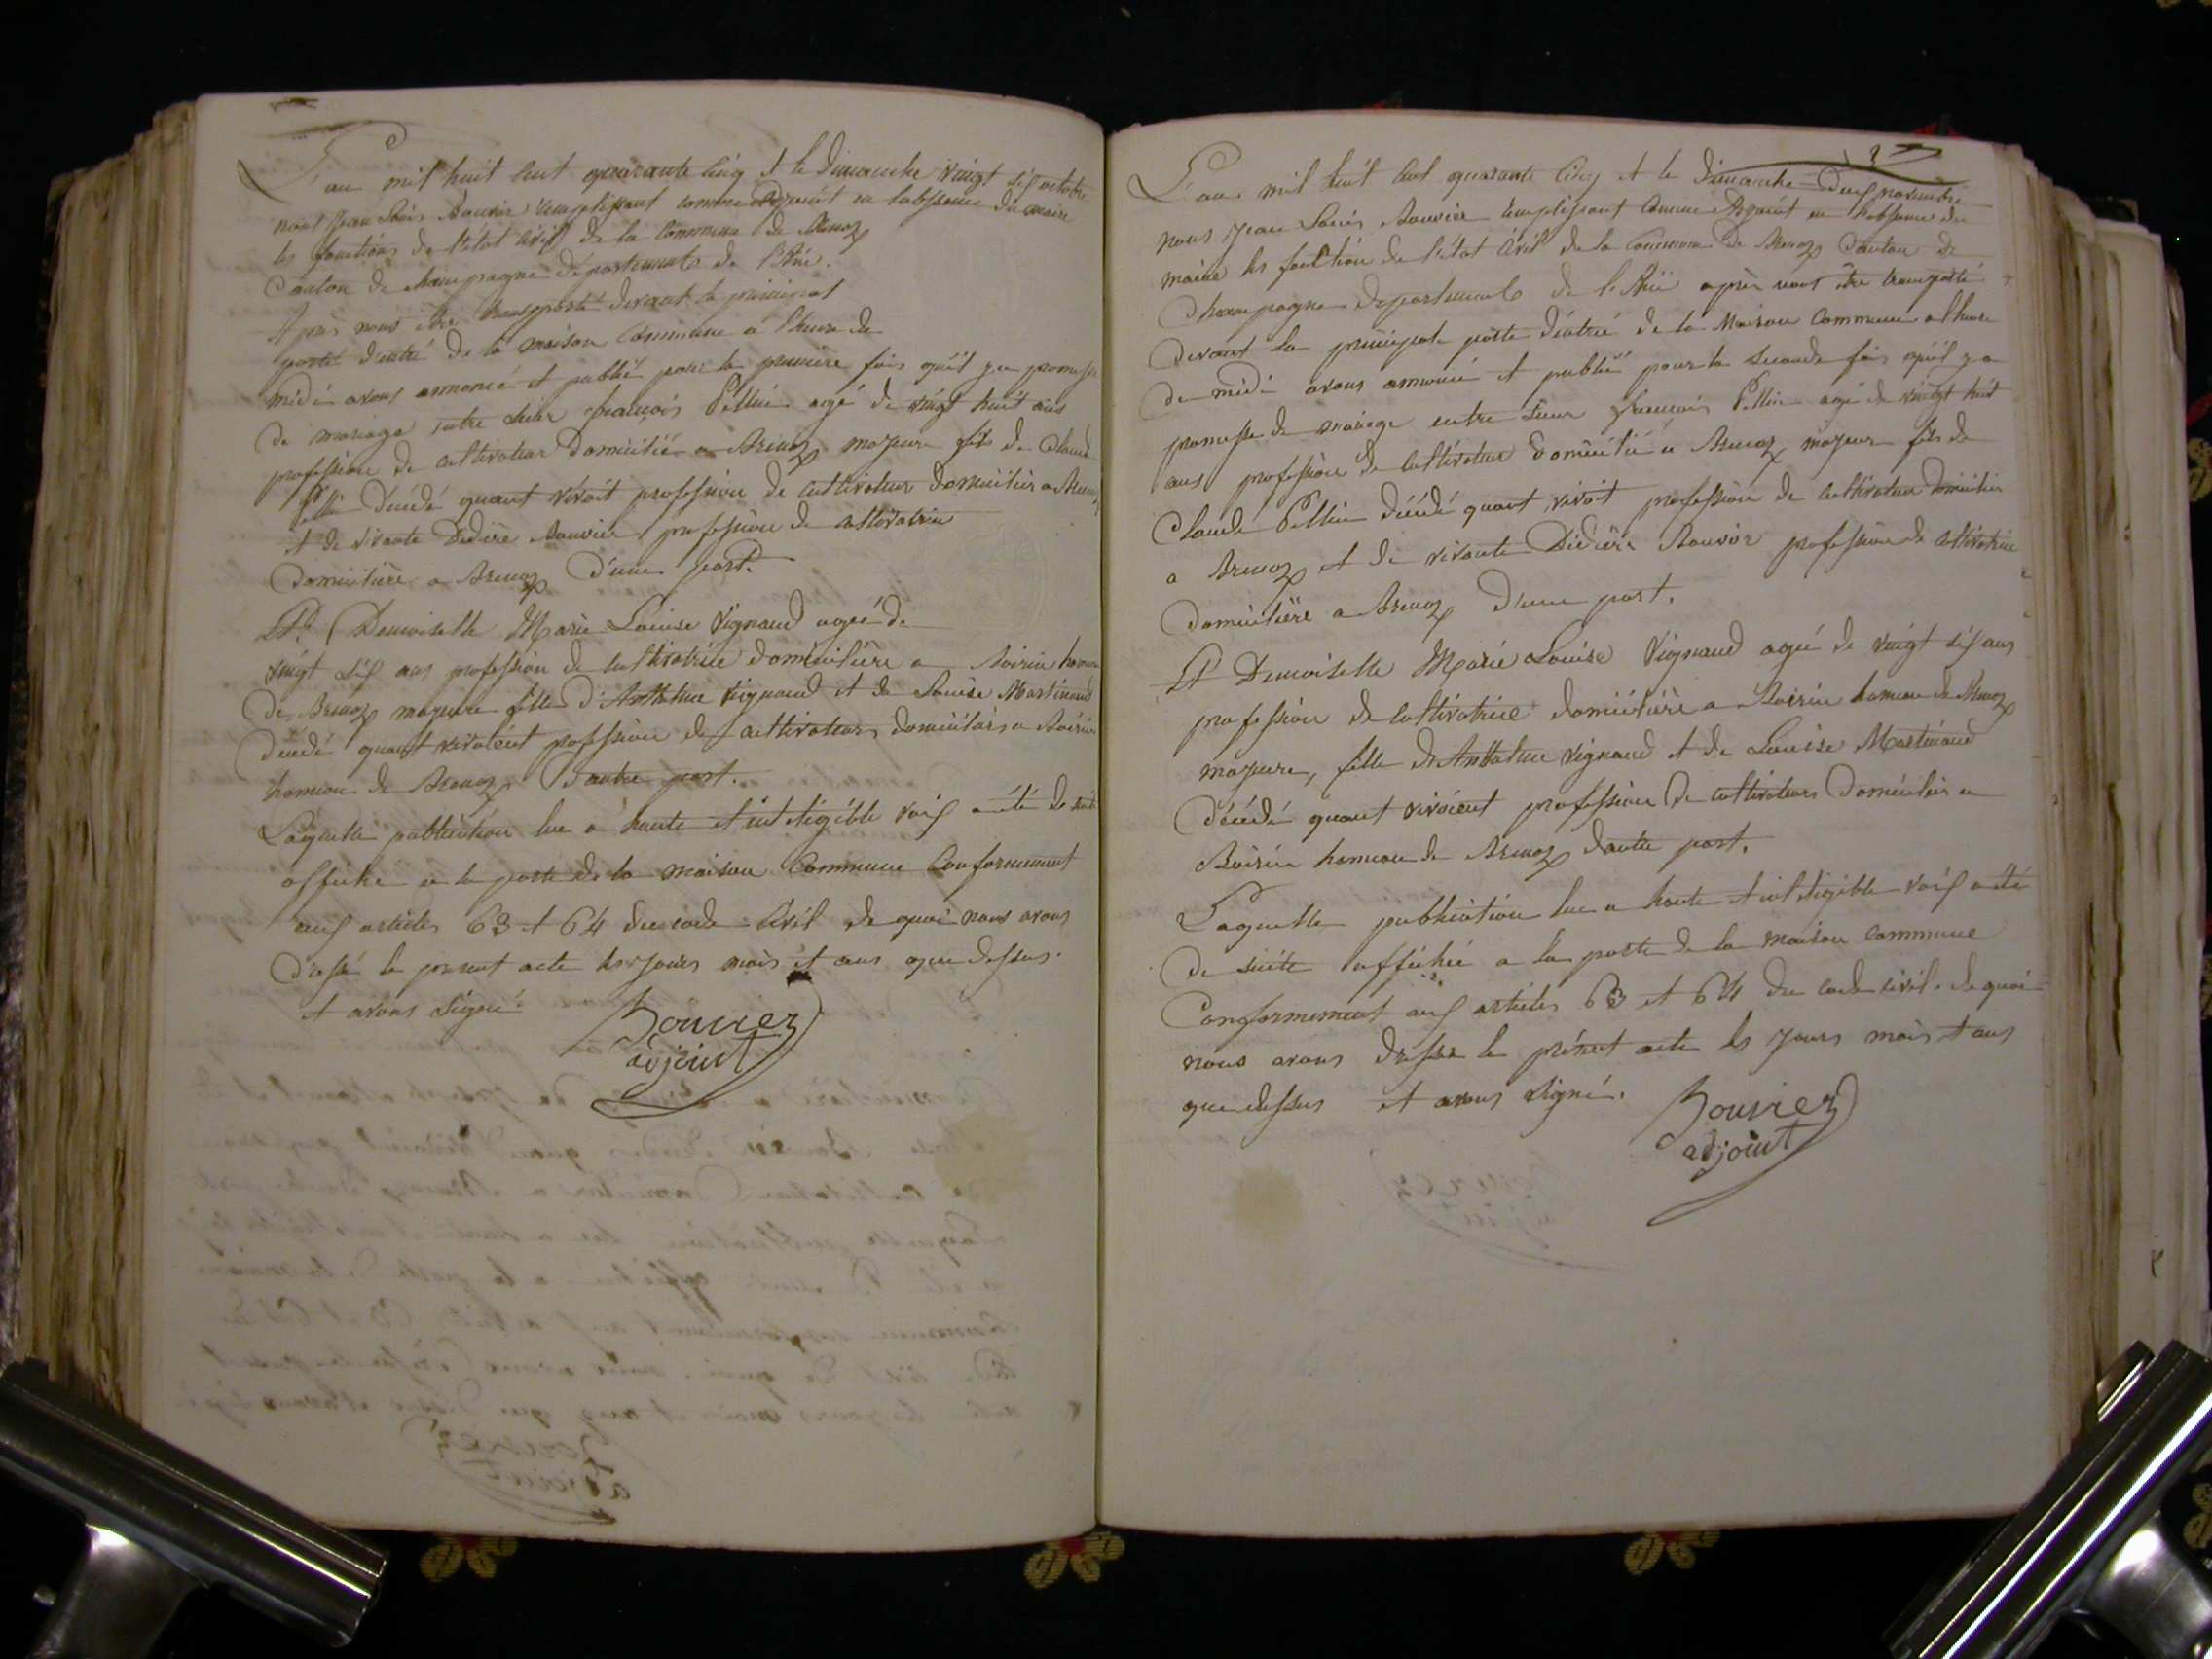 L'an mil huit cent quarante cinq et le dimanche vingt six octobre
nous Jean Louis Bouvier remplissant comme adjoint en labssence du maire
les fonctions de l'état civil de la commune de Brenaz
Canton de champagne département de l'Ain.
Après nous être transporté devant la principal
porte d'entré de la maison commune a l'heure de
midi avons annoncé et publié pour la première fois qu'il y a promesse
de mariage entre sieur françois Pellin agé de vingt huit ans
profession de cultivateur domicilié a Brenaz mayeur fils de Claude
Pellin décédé quant vivoit profession de cultivateur domicilier a Brenaz
et de vivante Didière Bouvier profession de cultivatrice
domicilière a Brenaz d'une part.
Et Demoiselle Marie Louise Vignaud agée de
vingt six ans profession de cultivatrice domicilière a Boirin hameau
de Brenaz mayeure fille d'Anthelme Vignaud et de Louise Martinand
décédé quant vivoient profession de cultivateurs domiciliers a Boirin
hameau de Brenaz D'autre part.
Laquelle publication lue a haute et inteligible voix a été de suite
affiche a la porte de la maison Commune Conformement
aux articles 63 et 64 du code civil de quoi nous avons
dressé le present acte les jours mois et ans que dessus.
et avons signé.
Bouvier
adjoint
L'an mil huit cent quarante cinq et le dimanche deux novembre
nous Jean Louis Bouvier remplissant comme Adjoint en l'absence du
maire les fonction de l'état civil de la commune de Brenaz canton de
Champagne departement de l'Ain après nous être transporté
devant la principale porte d'entrée de la Maison commune a l'heure
de midi avons annoncé et publié pour la seconde fois qu'il y a
promesse de mariage entre sieur françois Pellin agé de vingt huit
ans profession de cultivateur domicilié a Brenaz mayeur fils de
Claude Pellin décédé quant vivoit profession de cultivateur domicilier
a Brenaz et de vivante Didière Bouvier profession de cultivatrice
domicilière a Brenaz d'une part.
Et Demoiselle Marie Louise Vignaud agée de vingt six ans
profession de cultivatrice domicilière a Boirin hameau de Brenaz
mayeure, fille de Anthelme Vignaud et de Louise Martinand
décédé quant vivoient profession de cultivateurs domicilier a
Boirin hameau de Brenaz dautre part.
Laquelle publication lue a haute et inteligible voix a été
de suite affichée a la porte de la maison commune
Conformement aux articles 63 et 64 du code civil. de quoi
nous avons dressé le présent acte les jours mois et ans
que dessus et avons signé.
Bouvier
adjoint